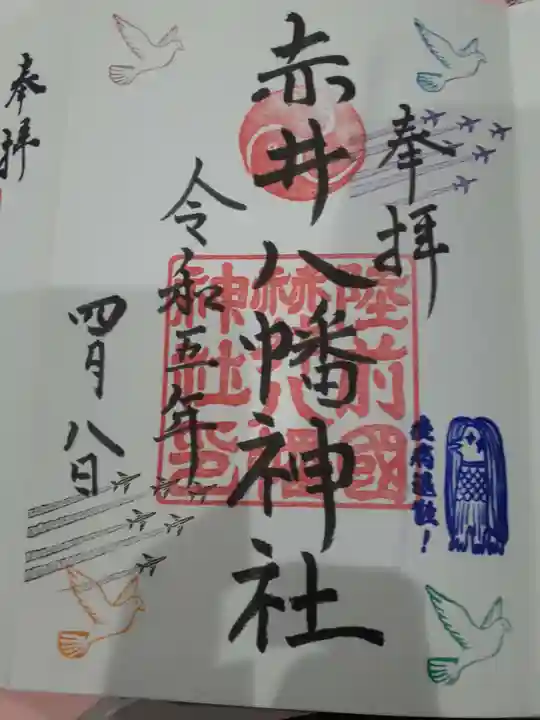 奉拝
赤井八幡神社
令和五年
四月八日
陸前國
赤井八幡
神社印
疫病退散！
奉拝